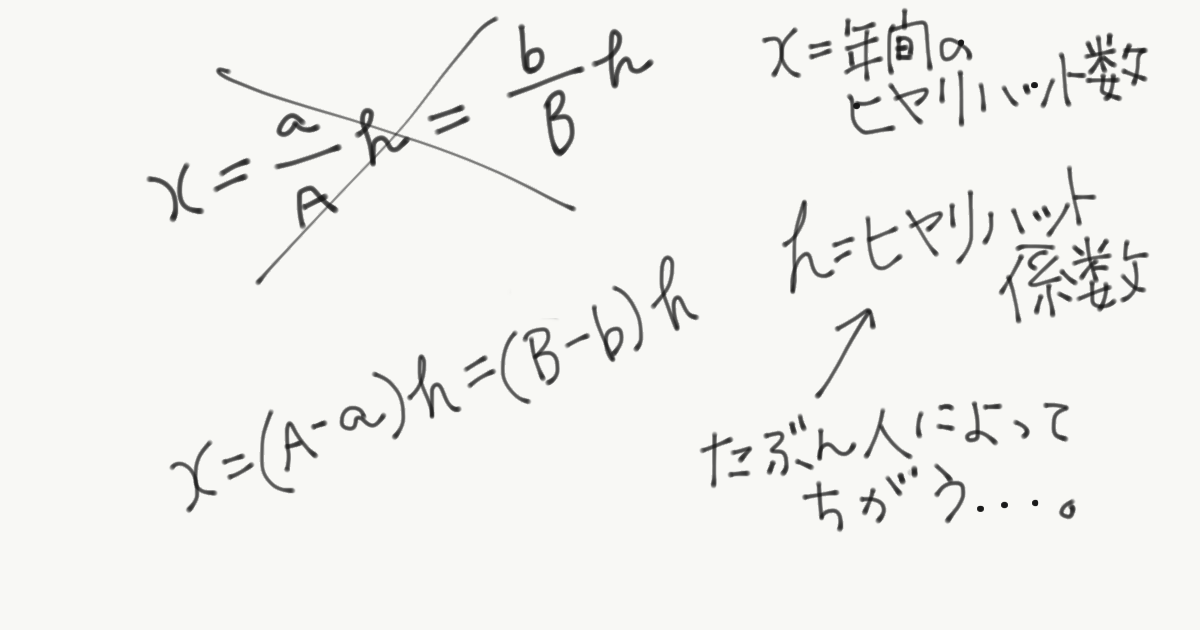 x = a/A h = b/B h
x = (A-a)h = (B-b)h
x = 年間の
ヒヤリハット数
h = ヒヤリハット
係数
たぶん人によって
ちがう...。